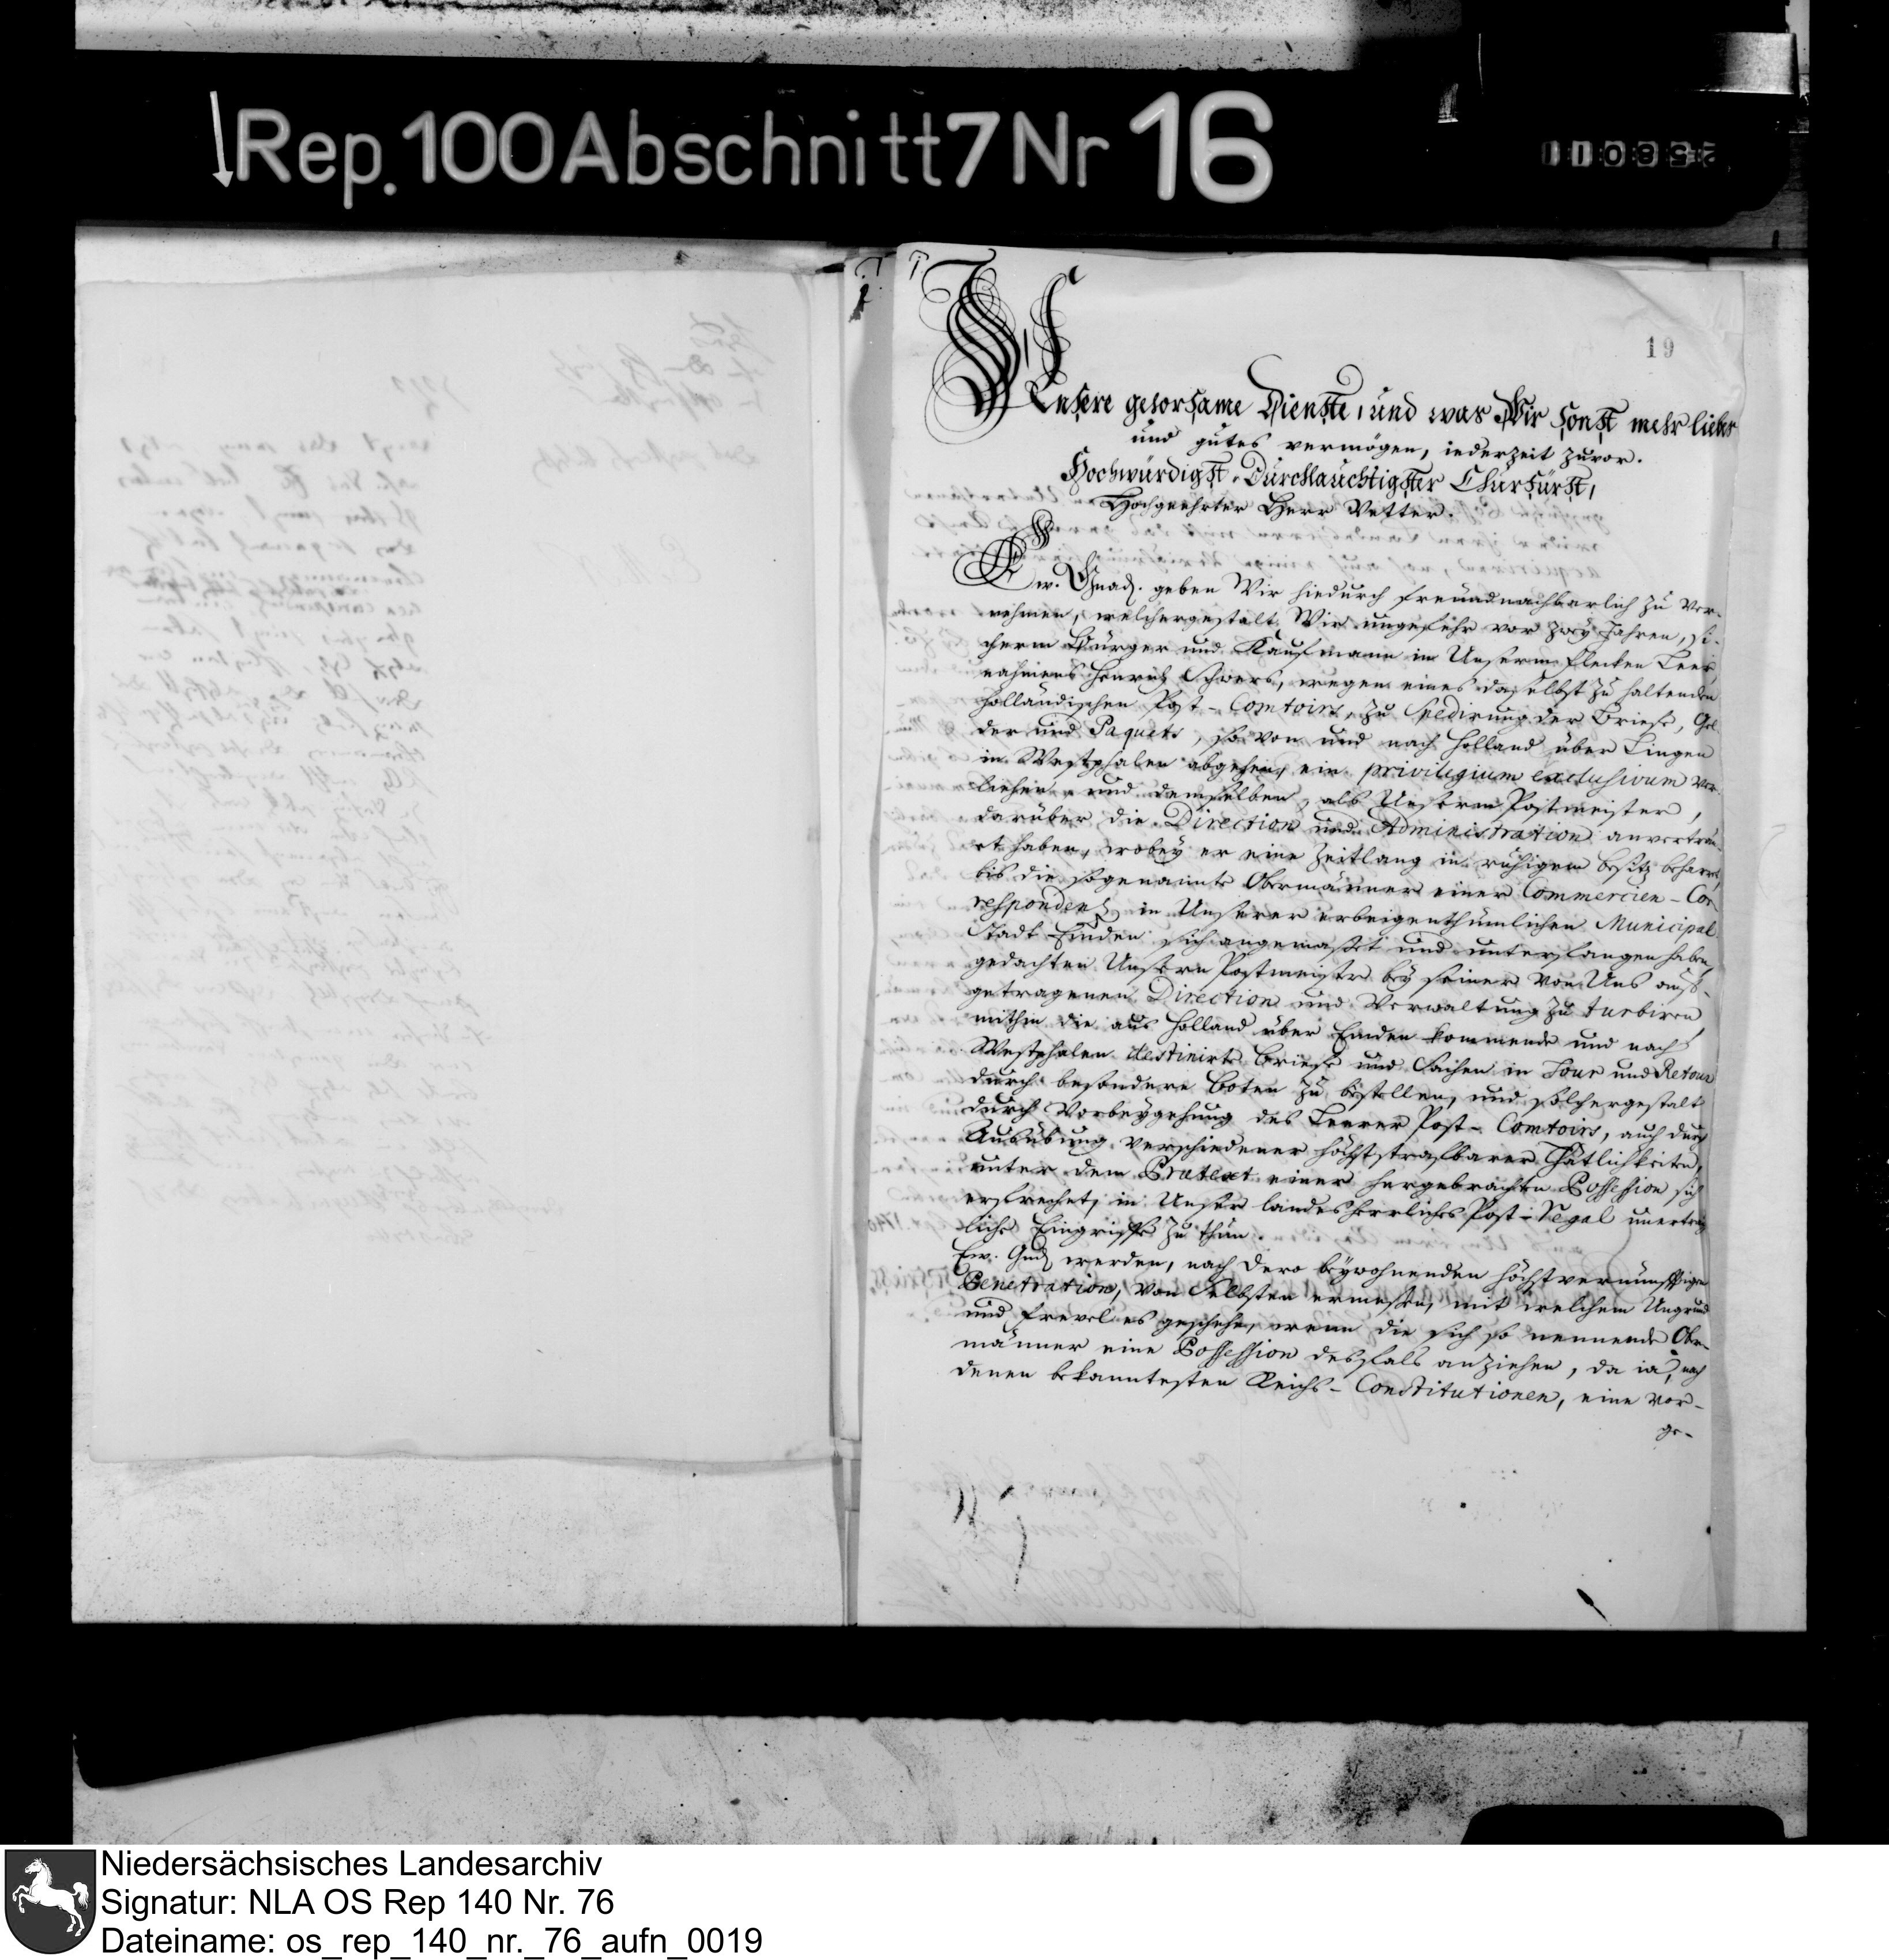 Rep. 100 Abschnitt 7 Nr 16
19
Unsere gehorsame Dienste, und was Wir sonst mehr liebes
und gutes vermögen, iederzeit zuvor.
Hochwürdigst-Durchlauchtigster Churfürst,
Hochgeehrter Herr Vetter.
Ew. Gnad. geben Wir hiedurch freundnachbarlich zu ver-
nehmen, welchergestalt Wir ungefehr vor zwey Jahren, si-
cherm Bürger und Kaufmann in Unserm Flecken Leer,
nahmens Henrich Schwers, wegen eines daselbst zu haltenden
Holländischen Post-Comtoirs, zu Spedirung der Briefe, Gel-
der und Paquets, so von und nach Holland über Lingen
in Westphalen abgehen, ein privilegium exclusivum ver-
liehen, und demselben, als Unserm Postmeister,
darüber die Direction und Administration anvertrau-
et haben, wobey er eine Zeitlang in ruhigem besitz beharret,
bis die sogenannte Obermänner einer Commercien-Cor-
respondentz in Unserer erbeigenthümlichen Municipal
Stadt Emden sich angemaßet und unterfangen haben,
gedachten Unsern Postmeister bey seiner von Uns auf-
getragenen Direction und Verwaltung zu turbiren,
mithin die aus Holland über Emden kommende und nach
Westphalen destinirte Briefe und Sachen in Tour und Retour
durch besondere Boten zu bestellen, und solchergestalt
durch Vorbeygehung des Leerer Post-Comtoirs, auch durch
Ausübung verschiedener höchststrafbarer Thätlichkeiten,
unter dem Prætext einer hergebrachten Possession sich
erfrechet, in Unser landesherrliches Post-Regal unerträg-
liche Eingriffe zu thun.
Ew. Gnd. werden, nach Dero beywohnenden höchstvernünfftigen
Penetration, von Selbsten ermeßen, mit welchem Ungrund
und frevel es geschehe, wenn die sich so nennende Ober-
männer eine Possession desfals anziehen, da ia, nach
denen bekanntesten Reichs-Constitutionen, eine vor-
ge-
Niedersächsisches Landesarchiv
Signatur: NLA OS Rep 140 Nr. 76
Dateiname: os_rep_140_nr._76_aufn_0019